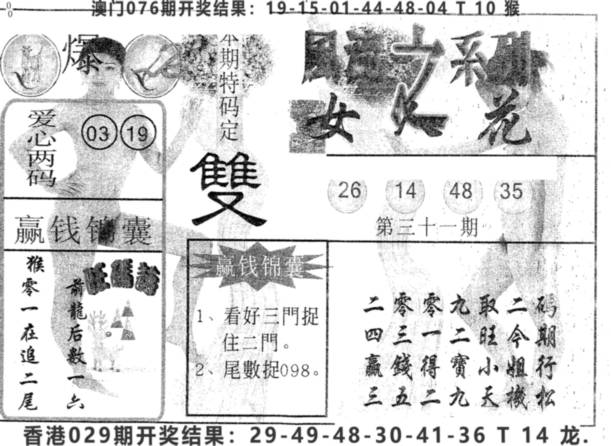 澳门076期开奖结果：19-15-01-44-48-04 T 10 猴
爆
本期特码定
雙
爱心两码
03 19
赢钱锦囊
猴零一在追二尾
前龍后数一六
旺
女人花
26 14 48 35
第三十一期
赢钱锦囊
1、看好三門捉
住二門。
2、尾數捉098。
二零零九取二碼
四三一二旺今期
贏錢得寶小姐行
三五二九天機松
香港029期开奖结果：29-49-48-30-41-36 T 14 龙.